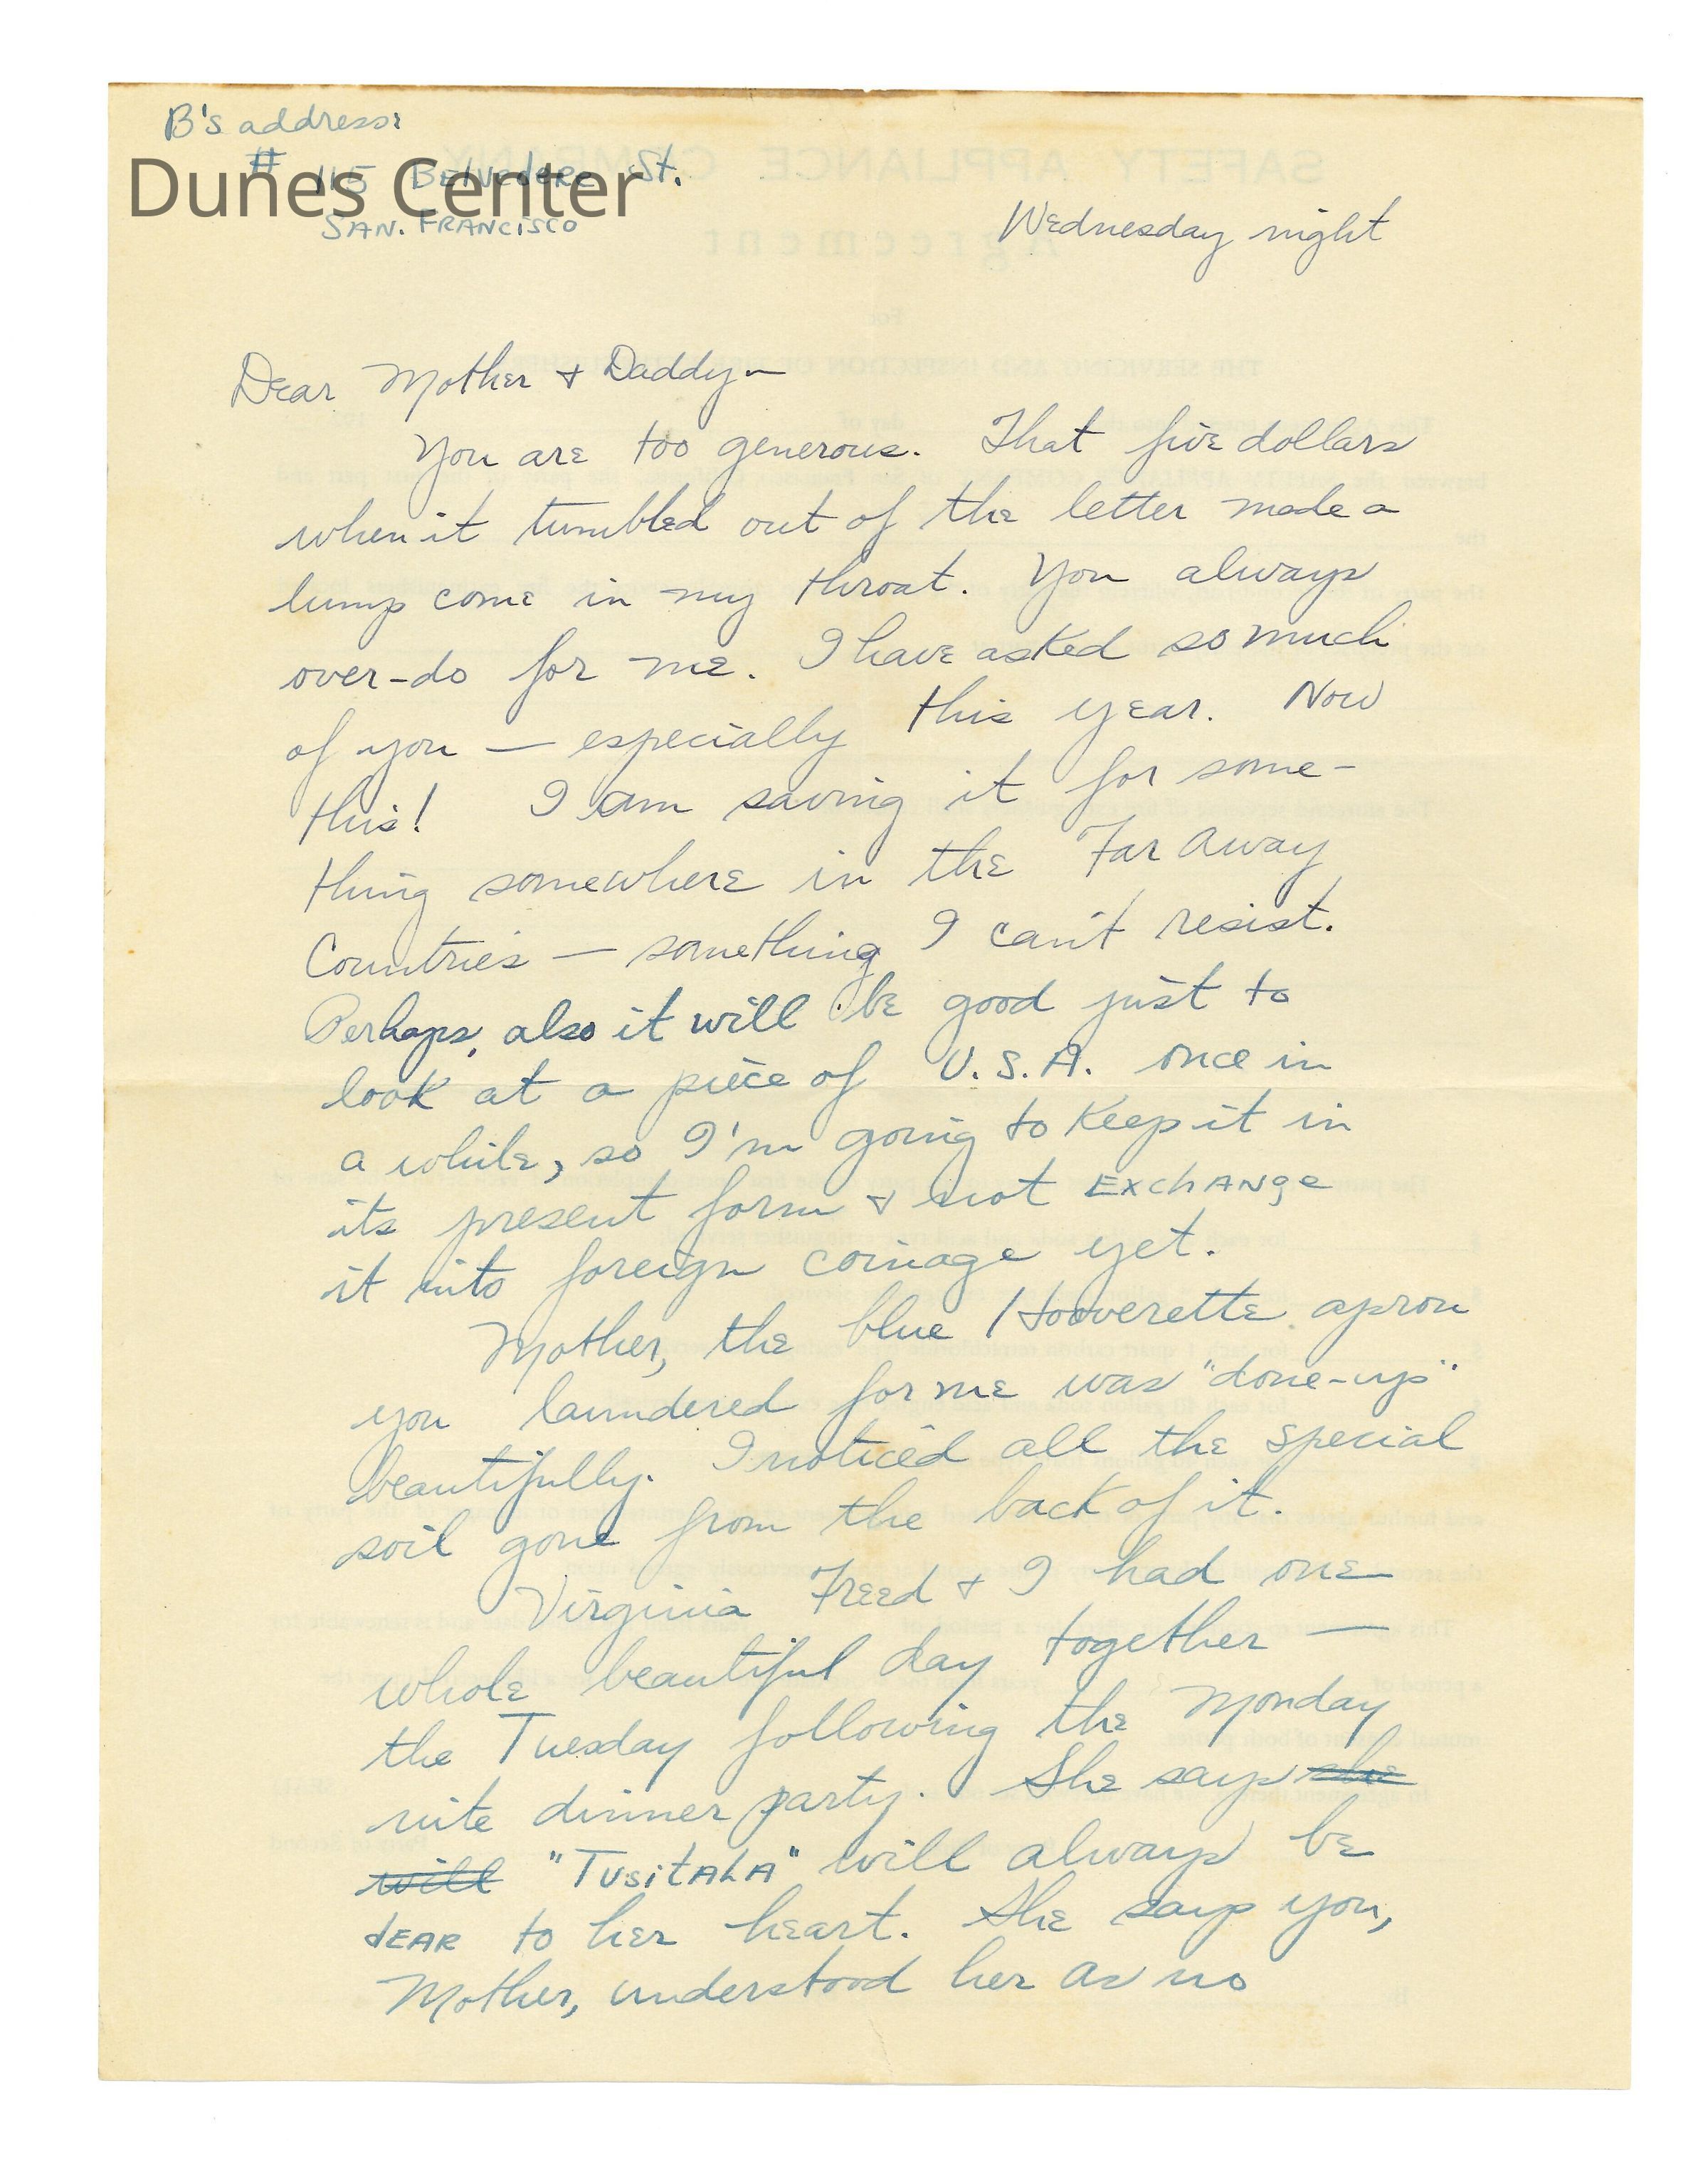 B's address:
# 115 Belvedere St.
Dunes Center
San. Francisco
Wednesday night
SAFETY APPLIANCE COMPANY
Agreement
For
Dear Mother & Daddy—
You are too generous. That five dollars
when it tumbled out of the letter made a
lump come in my throat. You always
over-do for me. I have asked so much
of you — especially this year. Now
this! I am saving it for some-
thing somewhere in the Far Away
Countries — something I can't resist.
Perhaps, also it will be good just to
look at a piece of U.S.A. once in
a while, so I'm going to keep it in
its present form & not EXchANge
it into foreign coinage yet.
Mother, the blue Hooverette apron
you laundered for me was "done-up"
beautifully. I noticed all the special
soil gone from the back of it.
Virginia Freed & I had one
whole beautiful day together —
the Tuesday following the Monday
nite dinner party. She says she
will "TusitALA" will always be
dEAR to her heart. She says you,
Mother, understood her as no